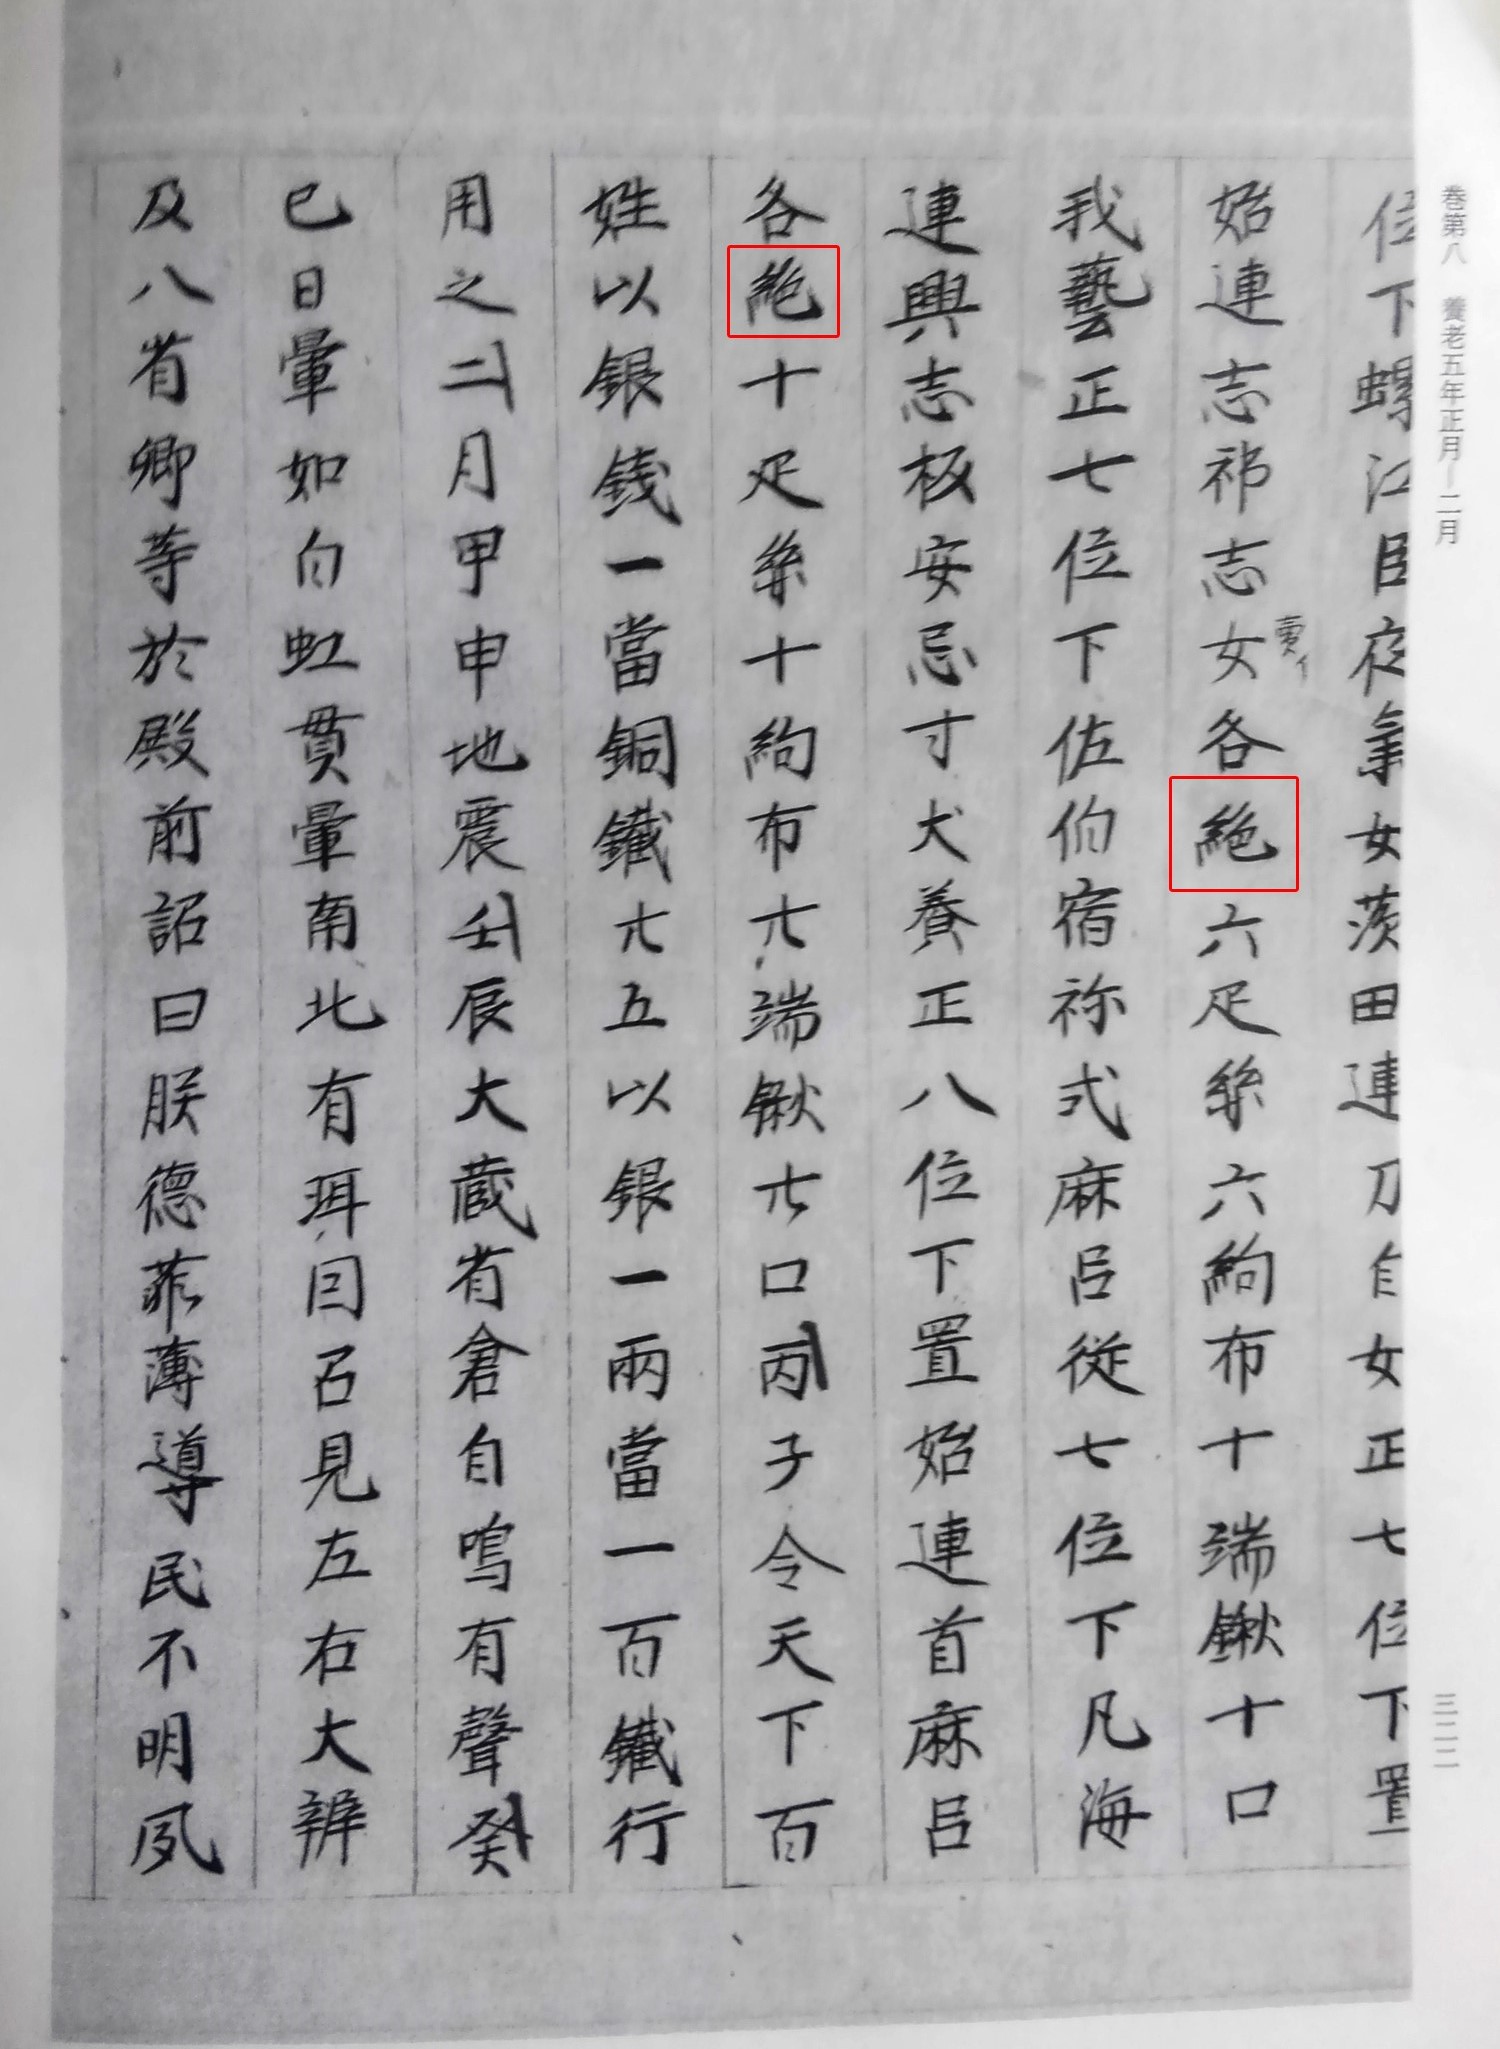 巻第八　養老五年正月―二月
三二二
位下螺江臣夜氣女茨田連刀自女正七位下置
始連志祁志女各絁六疋糸六絇布十端鍬十口
賣イ
我藝正七位下佐伯宿祢式麻呂従七位下凡海
連興志板安忌寸犬養正八位下置始連首麻呂
各絁十疋糸十絇布廿端鍬廿口丙子令天下百
姓以銀銭一當銅鐵廿五以銀一兩當一百鐵行
用之二月甲申地震壬辰大蔵省倉自鳴有聲癸
巳日暈如白虹貫暈南北有珥因召見左右大辨
及八省卿等於殿前詔曰朕德菲薄導民不明夙